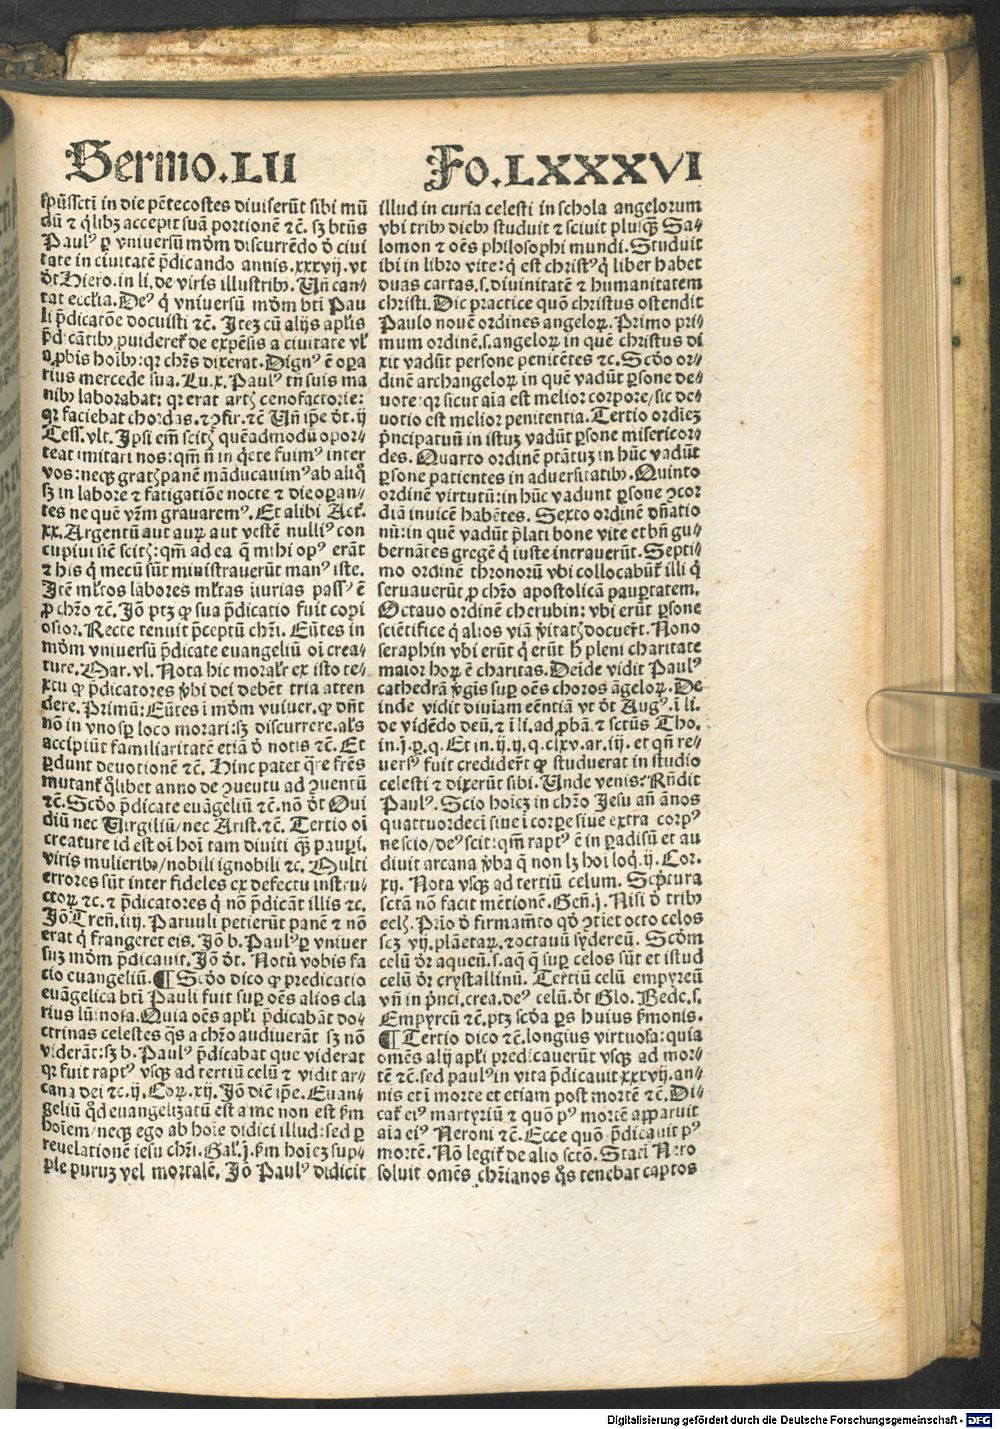 Sermo.LII
Fo.LXXXVI
spūssctī in die pētecostes diuiserūt sibi mū
dū ⁊ q̄libꝫ accepit suā portionē ⁊c̄. sꝫ btūs
Paulꝰ ꝑ vniuersū mōm discurrēdo ō ciui
tate in ciuitatē p̄dicando annis.xxxvij. vt
ōt Hiero.in li.de viris illustribꝰ. Uñ can⸗
tat eccl̄ia. Deꝰ q̄ vniuersū mōm bt̄i Pau
li p̄dicatōe docuisti ⁊c̄. Itez cū alijs apl̄is
p̄dicātibꝰ puideret᷑ de expēsis a ciuitate vl᷑
a ꝓbis hoībꝰ:qꝛ chr̄s dixerat. Dignꝰ ē oꝑa
rius mercede sua. Lu.x. Paulꝰ tñ suis ma
nibꝰ laborabat: qꝛ erat artꝭ cenofactorie:
qꝛ faciebat chordas.⁊ ↄfir.⁊c̄ Uñ ip̄e ōt.ij
Tess.vlt. Ipsi em̄ scitꝭ quēadmodū opor⸗
teat imitari nos: qm̄ n̄ in q̄ete fuimꝰ inter
vos: neqꝫ gratꝭ panē māducauimꝰ ab aliq̄
sꝫ in labore ⁊ fatigatiōe nocte ⁊ die oꝑan⸗
tes ne quē vr̄m grauaremꝰ. Et alibi Act᷑.
xx. Argentū aut auꝝ aut vestē nulliꝰ con
cupiui siē scitꝭ: qm̄ ad ea q̄ mihi opꝰ erāt
⁊ his q̄ mecū sūt ministrauerūt manꝰ iste.
Itē ml᷑tos labores ml᷑tas iiurias passꝰ ē
ꝓ chr̄o ⁊c̄. Iō ptꝫ ꝙ sua p̄dicatio fuit copi
osior. Recte tenuit p̄ceptū chr̄i. Eūtes in
mōm vniuersū p̄dicate euangeliū oī crea⸗
ture. Mar.vl. Nota hic moral᷑r ex isto te⸗
xtu ꝙ p̄dicatores v̄bi dei debēt tria atten
dere. Primū: Eūtes ī mōm vniuer. ꝙ dn̄t
nō in vno sꝑ loco morari: sꝫ discurrere. al᷑s
accipiūt familiaritatē etiā ō notis ⁊c̄. Et
ꝑdunt deuotionē ⁊c̄. Hinc patet q̄re fr̄es
mutant᷑ q̄libet anno de ↄuentu ad ↄuentū
⁊c̄. Scdo p̄dicate euāgeliū ⁊c̄. nō ōt Oui
diū nec Virgiliū/nec Arist.⁊c̄. Tertio oī
creature id est oī hoī tam diuiti qꝫ̄ pauꝑi.
viris mulieribꝰ/nobili ignobili ⁊c. Multi
errores sūt inter fideles ex defectu instru⸗
ctoꝝ ⁊c. ⁊ p̄dicatores q̄ nō p̄dicāt illis ⁊c.
Iō Tren.iiij. Paruuli petierūt panē ⁊ nō
erat q̄ frangeret eis. Iō b. Paulꝰ ꝑ vniuer
suꝫ mōm p̄dicauit. Iō ōt. Notū vobis fa
cio euangeliū. ¶ Scdo dico ꝙ predicatio
euāgelica bt̄i Pauli fuit suꝑ oēs alios cla
rius lūinosa. Quia oēs apl̄i p̄dicabāt do⸗
ctrinas celestes q̄s a chr̄o audiuerāt sꝫ nō
viderāt: sꝫ b. Paulꝰ p̄dicabat que viderat
qꝛ fuit raptꝰ vsqꝫ ad tertiū celū ⁊ vidit ar⸗
cana dei ⁊c.ij. Coꝝ.xij. Iō diē ip̄e. Euan⸗
geliū q̄d euangelizatū est a me non est ẜm
hoīem/neqꝫ ego ab hoīe didici illud: sed ꝑ
reuelationē iesu chr̄i. Gal᷑.j. ẜm hoīeꝫ sup⸗
ple puruꝫ vel mortalē. Iō Paulꝰ didicit
illud in curia celesti in schola angelorum
vbi tribꝰ diebꝰ studuit ⁊ sciuit plusqꝫ̄ Sa⸗
lomon ⁊ oēs philosophi mundi. Studuit
ibi in libro vite: q̄ est christꝰ q̄ liber habet
duas cartas.s. diuinitatē ⁊ humanitatem
christi. Dic practice quō christus ostendit
Paulo nouē ordines angeloꝝ. Primo pri⸗
mum ordinē.s.angeloꝝ in quē christus di
xit vadūt persone penitētes ⁊c. Scdo or⸗
dinē archangeloꝝ in quē vadūt ꝑsone de⸗
uote: qꝛ sicut aīa est melior corpore/sic de⸗
uotio est melior penitentia. Tertio ordieꝫ
p̄ncipatuū in istuꝫ vadūt ꝑsone misericor⸗
des. Quarto ordinē ptātuꝫ in hūc vadūt
ꝑsone patientes in aduersitatibꝰ. Quinto
ordinē virtutū: in hūc vadunt ꝑsone ↄcor⸗
diā inuicē habētes. Sexto ordinē dn̄atio
nū: in quē vadūt p̄lati bone vite et bn̄ gu⸗
bernātes gregē q̄ iuste intrauerūt. Septi⸗
mo ordinē thronorū vbi collocabūt᷑ illi q̄
seruauerūt ꝓ chr̄o apostolicā pauꝑtatem.
Octauo ordinē cherubin: vbi erūt ꝑsone
sciētifice q̄ alios viā v̄itatꝭ docuer̄t. Nono
seraphin vbi erūt q̄ erūt h̄ pleni charitate
maior hoꝝ ē charitas. Deīde vidit Paulꝰ
cathedrā v̄gīs suꝑ oēs choros āgeloꝝ. De
inde vidit diuīam eēntiā vt ōt Augꝰ. ī li.
de vidēdo deū.⁊ ī li.ad ꝓbā.⁊ sctūs Tho.
in.j.ꝑ.q. Et in.ij.ij.q.clxv.ar.iij. et qn̄ re⸗
uersꝰ fuit crediderēt ꝙ studuerat in studio
celesti ⁊ dixerūt sibi. Unde venis: Rn̄dit
Paulꝰ. Scio hoīeꝫ in chr̄o Iesu añ ānos
quattuordecī siue ī corꝑe siue extra corpꝰ
nescio/deꝰ scit: qm̄ raptꝰ ē in ꝑadisū et au
diuit arcana v̄ba q̄ non lꝫ hoī loq̄.ij. Cor.
xij. Nota vsqꝫ ad tertiū celum. Scp̄tura
sctā nō facit mētionē. Geñ.j. Nisi ō tribꝰ
celꝭ. Prīo ō firmamēto qō ↄtiet octo celos
scꝫ vij.plāetaꝝ.⁊octauū sydereū. Scdm
celū ōr aqueū.s.aq̄ q̄ suꝑ celos sūt et istud
celū ōr crystallinū. Tertiū celū empyreū
vñ in p̄nci.crea.deꝰ celū.ōt Glo. Bede.s.
Empyreū ⁊c̄.ptꝫ scda ps huius ẜmonis.
¶ Tertio dico ⁊c̄.longius virtuosa: quia
omēs alij apl̄i predicauerūt vsqꝫ ad mor⸗
tē ⁊c̄.sed paulꝰ in vita p̄dicauit xxxvij.an⸗
nis et ī morte et etiam post mortē ⁊c̄. Di⸗
cat᷑ eiꝰ martyriū ⁊ quō pꝰ mortē apparuit
aīa eiꝰ Neroni ⁊c̄. Ecce quō p̄dicauit pꝰ
mortē. Nō legit᷑ de alio sctō. Statī Nero
soluit omēs chr̄ianos q̄s tenebat captos
Digitalisierung gefördert durch die Deutsche Forschungsgemeinschaft - DFG